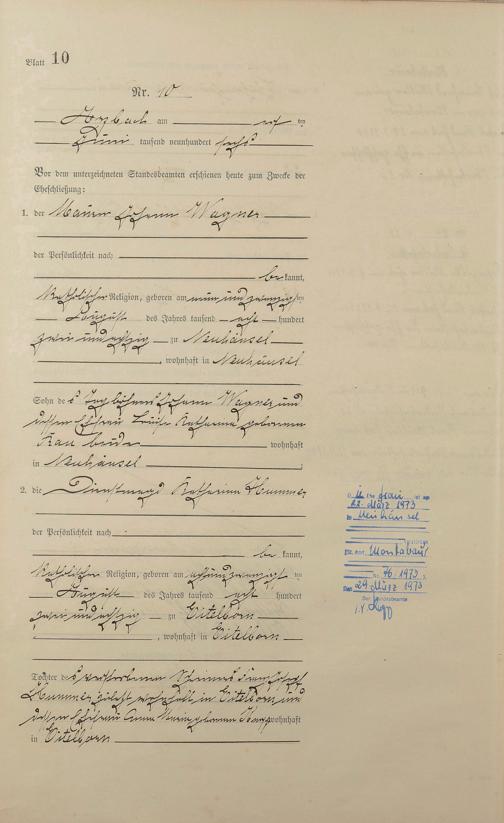 Blatt 10
Nr. 10
Horbach am elf ten
Juni tausend neunhundert sechs
Vor dem unterzeichneten Standesbeamten erschienen heute zum Zwecke der
Eheschließung:
1. der Maurer Johann Wagner
der Persönlichkeit nach
be kannt,
katholischer Religion, geboren am neunundzwanzigsten
August des Jahres tausend acht hundert
zwei und achtzig zu Neuhäusel
, wohnhaft in Neuhäusel
Sohn des Taglöhners Johann Wagner und
dessen Ehefrau Louise Katharina geborenen
wohnhaft
in Neuhäusel
2. die Dienstmagd Katharina Hummer
der Persönlichkeit nach
be kannt,
katholischer Religion, geboren am ten
August des Jahres tausend acht hundert
zwei und achtzig zu Eitelborn
, wohnhaft in Eitelborn
Tochter des verstorbenen
Hummer zuletzt wohnhaft in Eitelborn und
dessen Ehefrau Anna Maria geborenen wohnhaft
in Eitelborn
Ehefrau ist am
22. März 1973
in Neuhäusel
Montabaur
Nr. 76/1973
Den 29. März 1973
Der Standesbeamte
i.V.